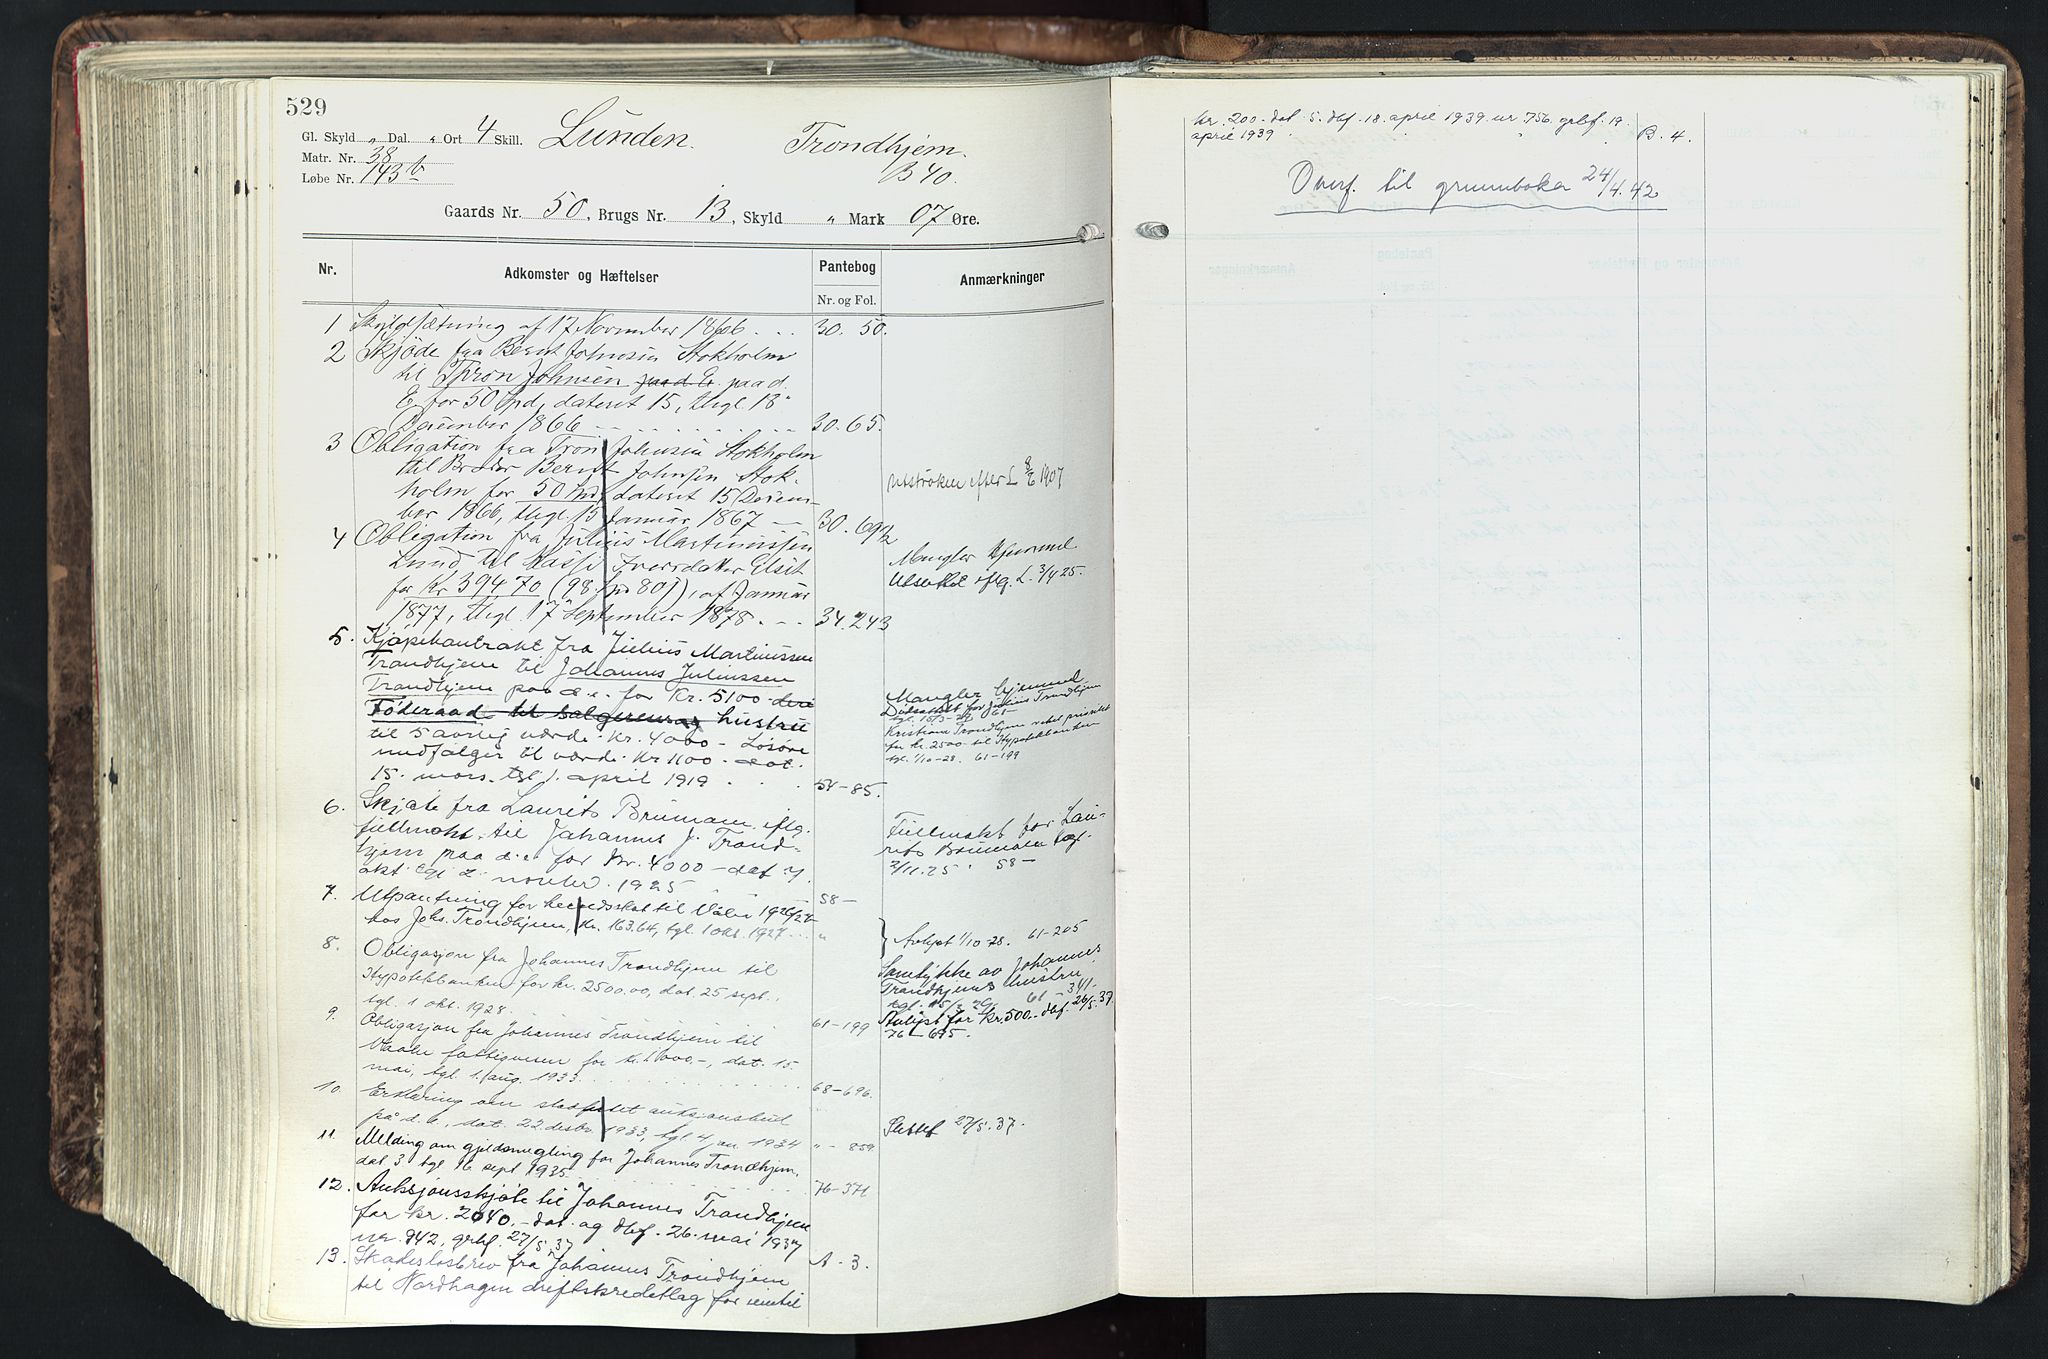 529
Gl. Skyld „ Dal. „ Ort 4 Skill. Lunden. Trondhjem.
Matr. Nr. 38
Løbe Nr. 143 b B 40.
Gaards Nr. 50, Brugs Nr. 13, Skyld „ Mark 07 Øre.
Nr. Adkomster og Hæftelser Pantebog Anmærkninger
Nr. og Fol.
1 Skyldsætning af 17 November 1866 . . 30. 50.
2 Skjøde fra Bernt Johnsen Stokholm
til Thron Johnsen paa d. E. paa d.
E. for 50 Spd, dateret 15, thgl. 18
December 1866 30. 65.
3 Obligation fra Tron Johnsen Stokholm
til Broder Bernt Johnsen Stok-
holm for 50 Spd, dateret 15 Decem-
ber 1866, thgl. 15 Januar 1867 30. 69
Utstrøken efter L 1907
4 Obligation fra Julius Martinussen
Lund til
for Kr 394 70 (98 Spd 80 ), af Januar
1877, thgl. 17 September 1878 . 34. 243
Mangler Hjemmel
iflg. L. 3/4 25.
5. Kjøpekontrakt fra Julius Martinussen
Trondhjem til Johannes Juliussen
Trondhjem paa d. e. for Kr. 5100
Føderaad til selgeren og hustru
til 5 aarlig værdi Kr. 4000 - Løsøre
medfølger til værdi Kr 1100 - dat.
15. mars tgl 1. april 1919 54-85.
Mangler hjemmel
for Julius Trondhjem
61
Kristiane Trondhjem prioritet
for kr. 2500 til Hypotekbanken
tgl. 1/10-28. 61-199
6. Skjøte fra Laurits Brumam iflg.
fullmakt til Johannes J. Trond-
hjem paa d. e. for Kr. 4000 - dat 7
okt tgl 2 november 1925 58-
Fullmakt for Lau-
rits tgl.
2/11.25 58-
7. Utpantning for herredsskat til Våler 1926/27
hos Johs. Trondhjem, kr. 163.64, tgl. 1 okt. 1927 „
Avlyst 1/10-28. 61-205
8. Obligasjon fra Johannes Trondhjem til
Hypotekbanken for kr. 2500.00, dat. 25 sept.,
tgl. 1 okt. 1928 61-199
Samtykke av Johannes
Trondhjems hustru
61-341.
Avlyst for kr. 500.- dbf. 26/5.37
76-675.
9. Obligasjon fra Johannes Trondhjem til
Vaaler fattigvesen for kr. 1000.-, dat. 15
mai, tgl. 1. aug. 1933 68-696.
10. Erklæring om stadfestet auksjonsbud
på d. e., dat. 22. desbr. 1933, tgl. 4 jan. 1934 „ - 859.
Slettet 27/5.37.
11. Melding om gjeldsmegling for Johannes Trondhjem.
dat 3 tgl 16 sept 1935 76-371
12. Auksjonsskjøte til Johannes Trondhjem
for kr. 2040.- dat. og dbf. 26. mai 1937
nr. 942, grbf. 27/5 37 A - 3.
13. Skadesløsbrev fra Johannes Trondhjem
til Nordhagen driftskredittlag for inntil
kr. 200.- dat 5. dbf. 18. april 1939 nr 756. grbf. 19
april 1939 B. 4.
Overf. til grunnboka 24/4.42